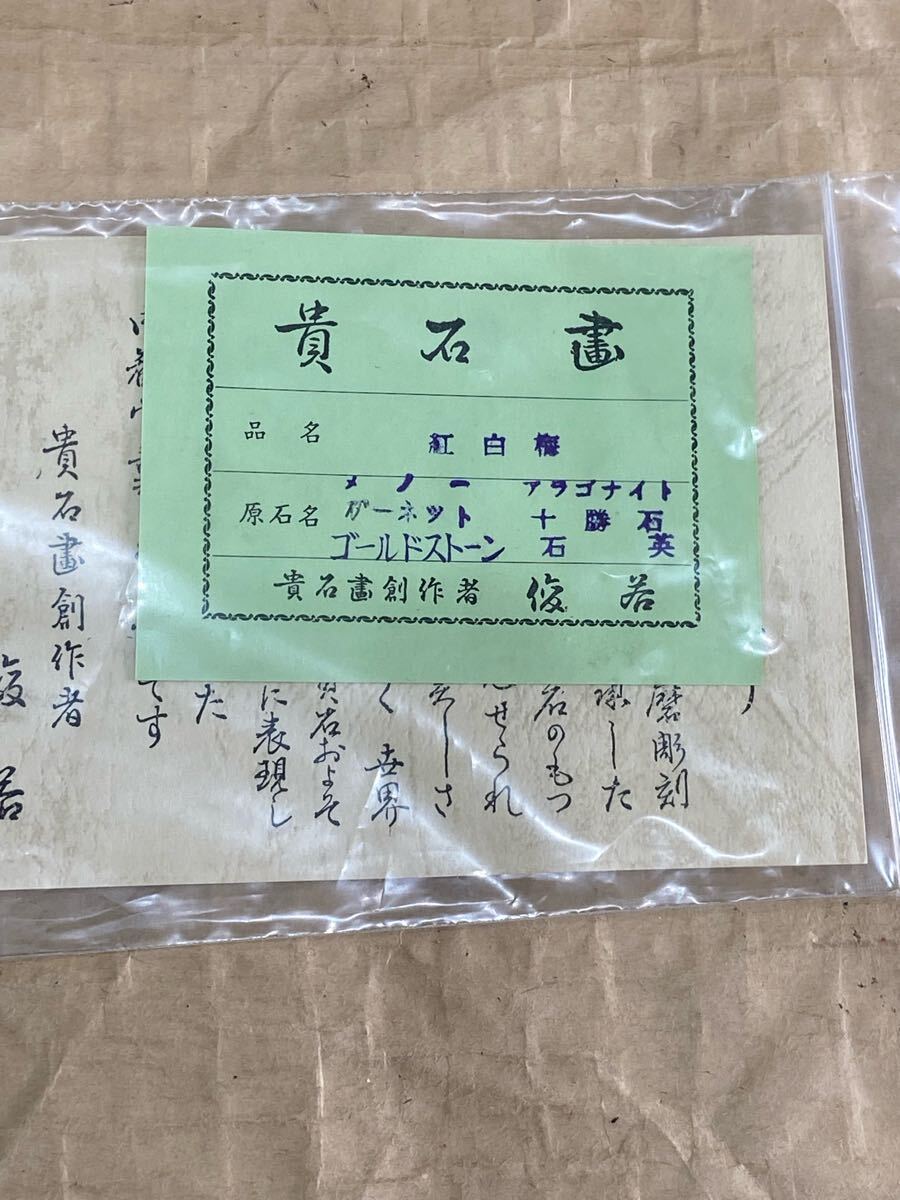 貴石畫
品名 紅白梅
原石名 メノー アラゴナイト
ガーネット 十勝石
ゴールドストーン 石英
貴石畫創作者 俊若
磨彫刻
した
石のもつ
せられ
しさ
く 世界
貴石およそ
に表現し
た
です
貴石畫創作者
俊若